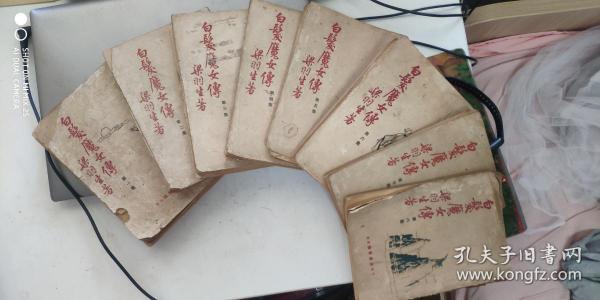 白髮魔女傳
梁羽生著
白髮魔女傳
梁羽生著
白髮魔女傳
梁羽生著
白髮魔女傳
梁羽生著
白髮魔女傳
梁羽生著
白髮魔女傳
梁羽生著
白髮魔女傳
梁羽生著
白髮魔女傳
梁羽生著
SHOT ON HONOR
AI DUAL CAMERA
孔夫子旧书网
www.kongfz.com